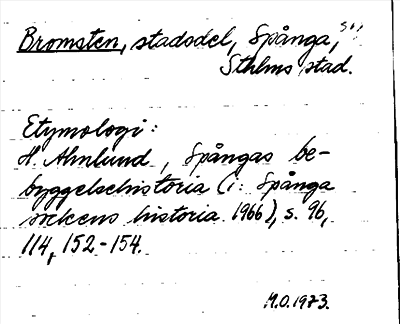 Bromsten, stadsdel, Spånga, sn,
Sthlms stad.
Etymologi:
H. Ahnlund, Spångas be-
byggelsehistoria (i: Spånga
sockens historia 1966), s. 96,
114, 152-154.
M.O. 1973.